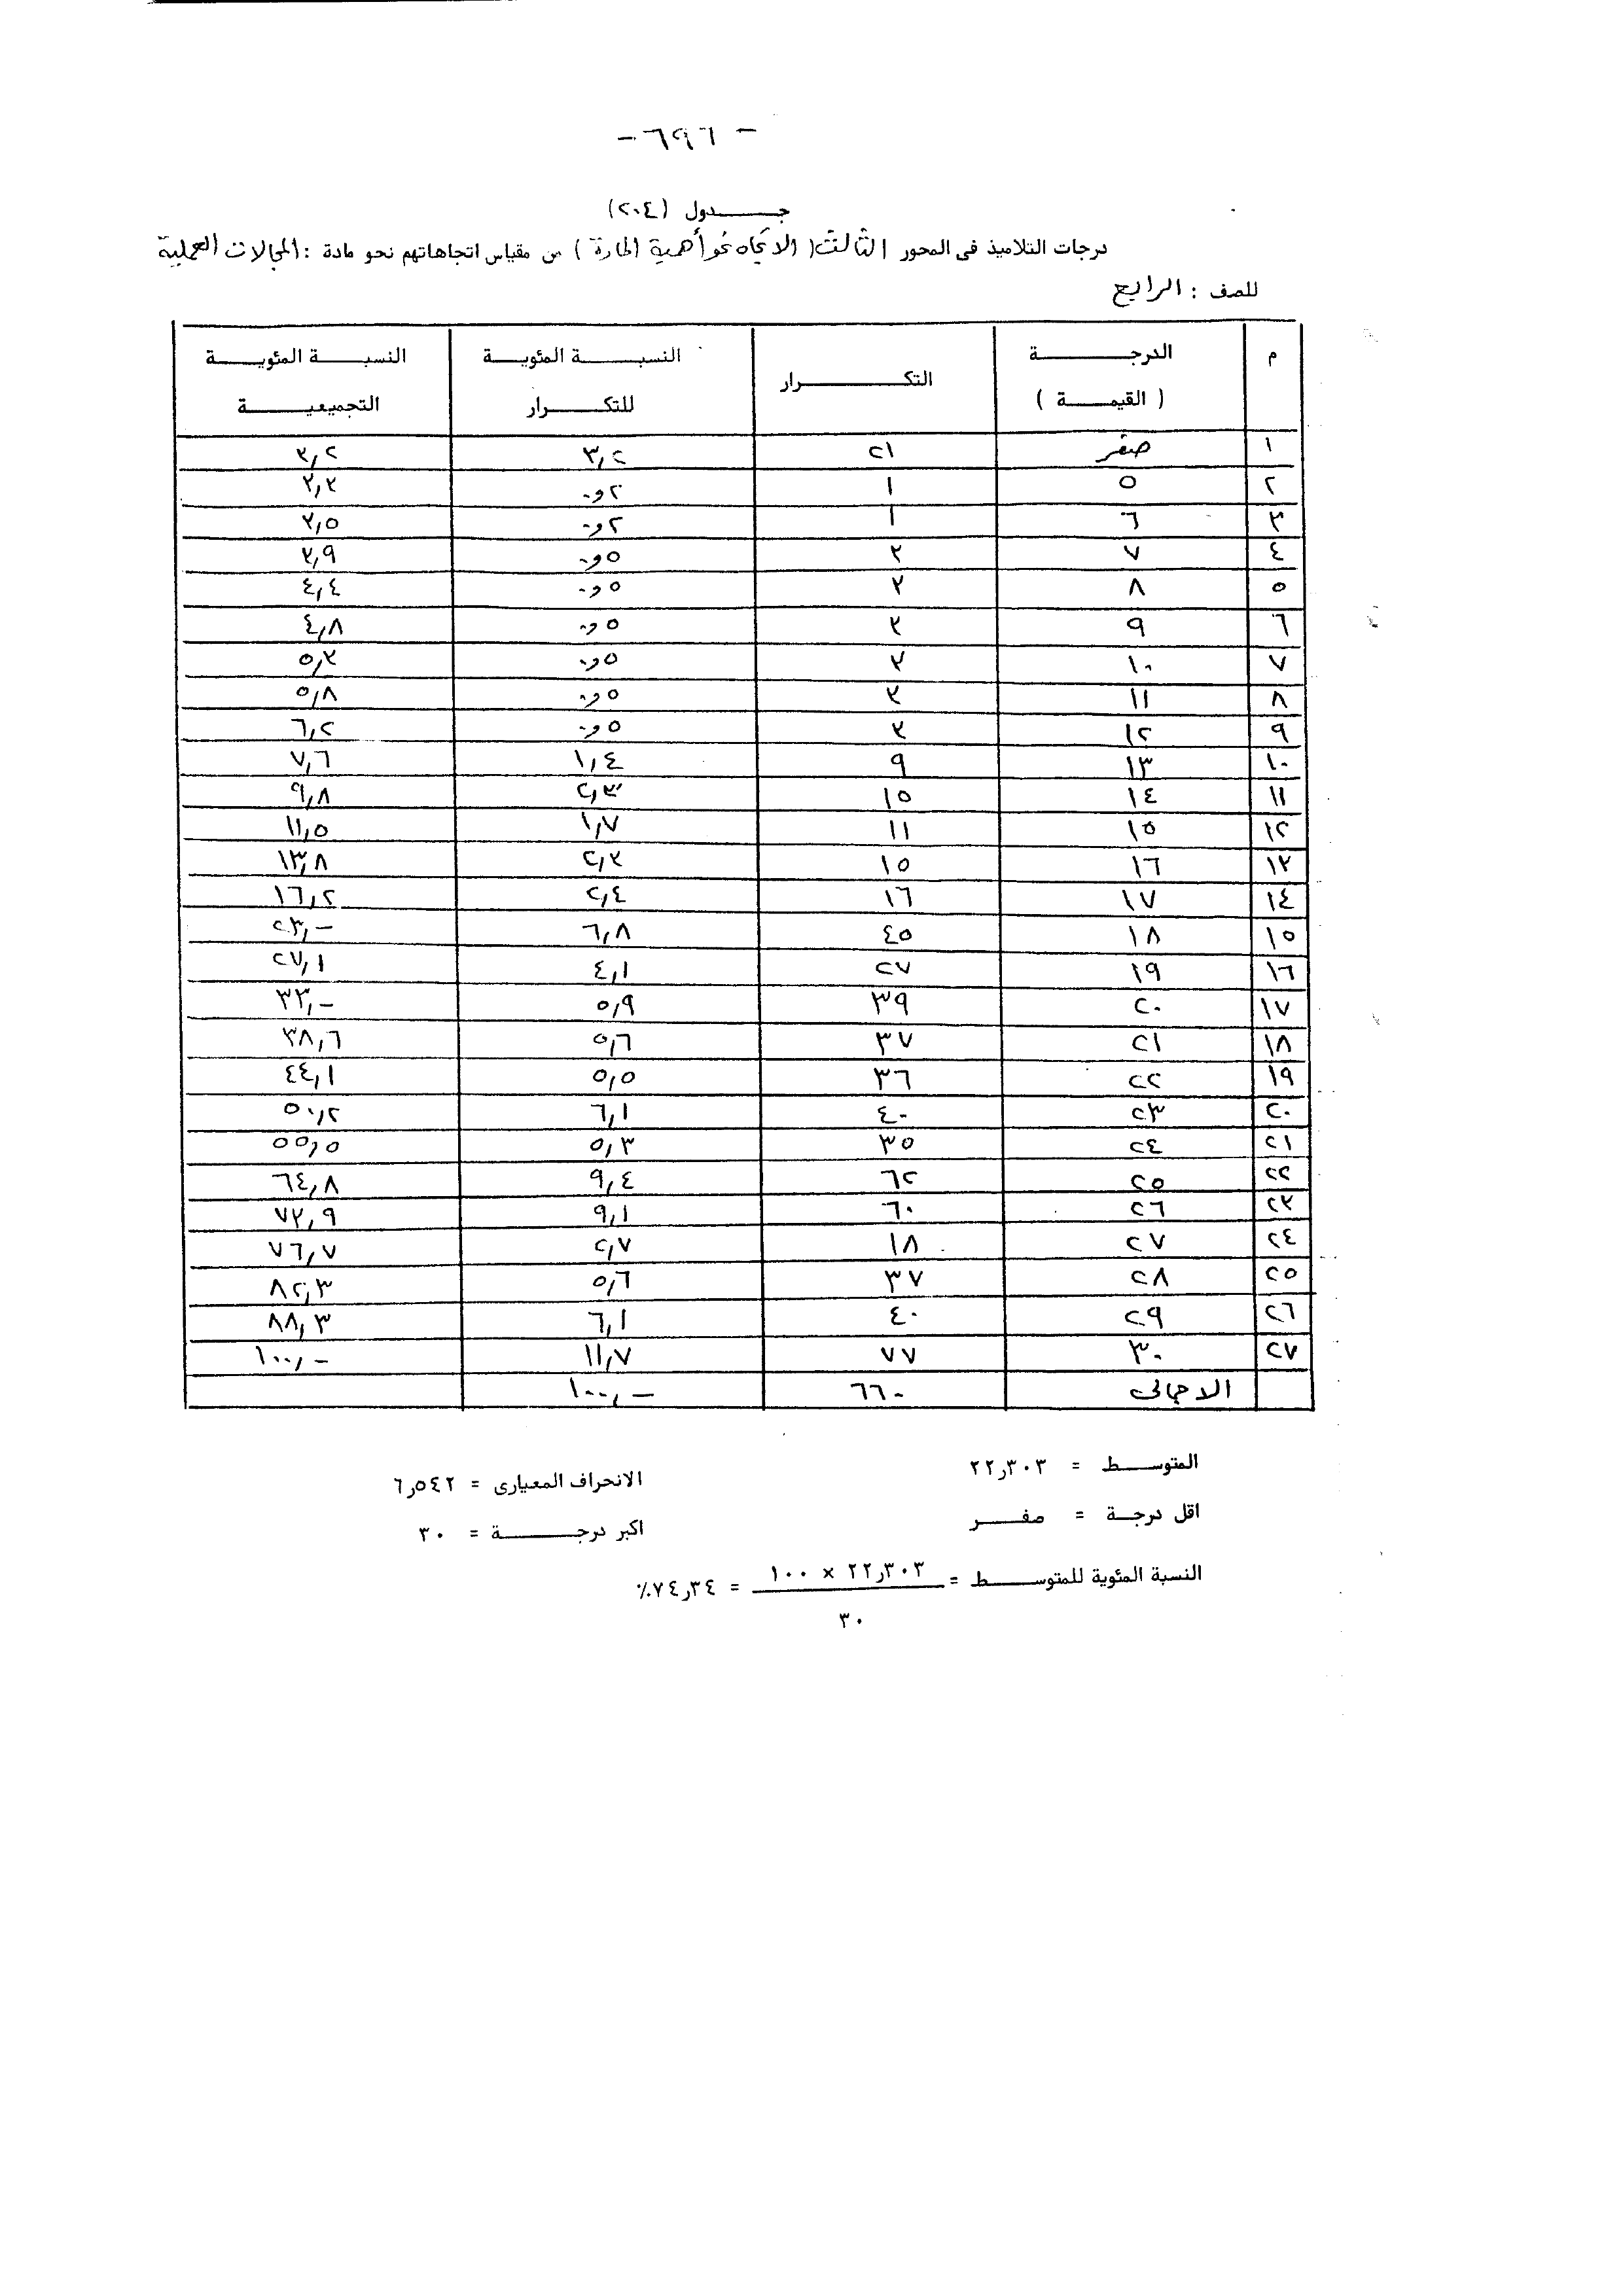 - ٦٩٦ -
جدول (٢٠٤)
درجات التلاميذ فى المحور الثالث ( الاتجاه نحو أهمية المادة ) من مقياس اتجاهاتهم نحو مادة : المجالات العملية
للصف : الرابع
م الدرجة ( القيمة ) التكرار النسبة المئوية للتكرار النسبة المئوية التجميعية
١ صفر ٢١ ٣,٢ ٣,٢
٢ ٥ ١ ٢و٠ ٣,٣
٣ ٦ ١ ٢و٠ ٣,٥
٤ ٧ ٣ ٥و٠ ٣,٩
٥ ٨ ٣ ٥و٠ ٤,٤
٦ ٩ ٣ ٥و٠ ٤,٨
٧ ١٠ ٣ ٥و٠ ٥,٣
٨ ١١ ٣ ٥و٠ ٥,٨
٩ ١٢ ٣ ٥و٠ ٦,٢
١٠ ١٣ ٩ ١,٤ ٧,٦
١١ ١٤ ١٥ ٢,٣ ٩,٨
١٢ ١٥ ١١ ١,٧ ١١,٥
١٣ ١٦ ١٥ ٢,٣ ١٣,٨
١٤ ١٧ ١٦ ٢,٤ ١٦,٢
١٥ ١٨ ٤٥ ٦,٨ ٢٣,-
١٦ ١٩ ٢٧ ٤,١ ٢٧,١
١٧ ٢٠ ٣٩ ٥,٩ ٣٣,-
١٨ ٢١ ٣٧ ٥,٦ ٣٨,٦
١٩ ٢٢ ٣٦ ٥,٥ ٤٤,١
٢٠ ٢٣ ٤٠ ٦,١ ٥٠,٢
٢١ ٢٤ ٣٥ ٥,٣ ٥٥,٥
٢٢ ٢٥ ٦٢ ٩,٤ ٦٤,٨
٢٣ ٢٦ ٦٠ ٩,١ ٧٣,٩
٢٤ ٢٧ ١٨ ٢,٧ ٧٦,٧
٢٥ ٢٨ ٣٧ ٥,٦ ٨٢,٣
٢٦ ٢٩ ٤٠ ٦,١ ٨٨,٣
٢٧ ٣٠ ٧٧ ١١,٧ ١٠٠,-
الاجمالى ٦٦٠ ١٠٠,-
المتوسط = ٣٠٣ر٢٢ الانحراف المعيارى = ٥٤٢ر٦
اقل درجة = صفر اكبر درجة = ٣٠
النسبة المئوية للمتوسط = ٣٠٣ر٢٢ × ١٠٠ = ٣٤ر٧٤٪
٣٠